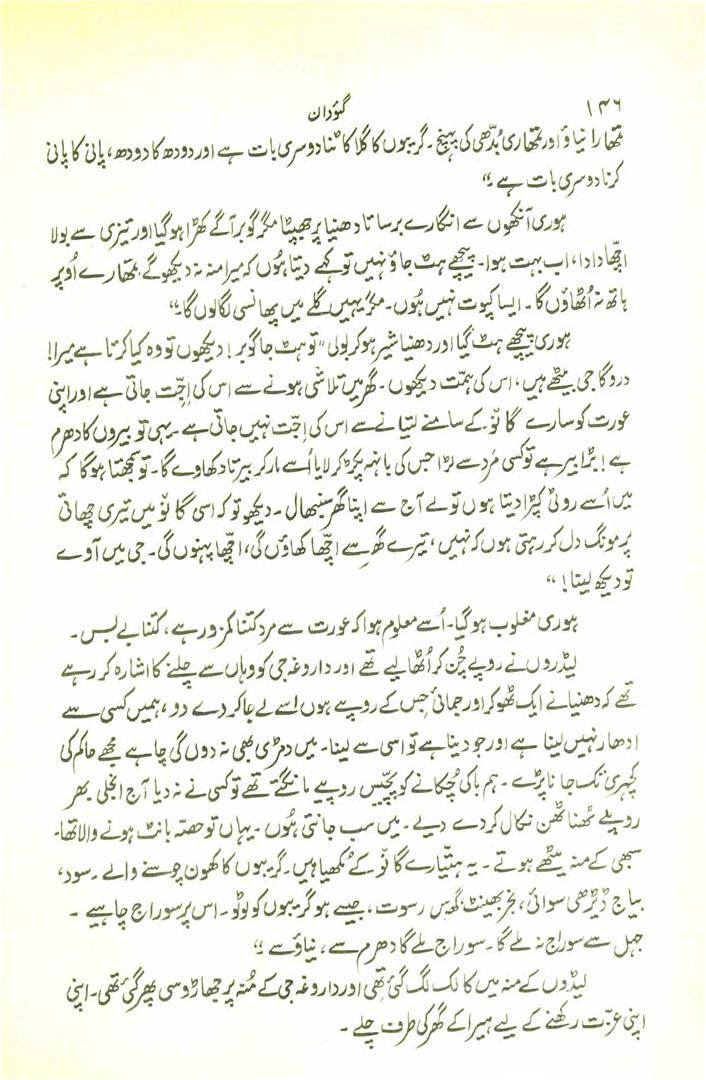 ۱۴۶
گئودان
تمھارا نیاؤ اور تمھاری بُدّھی کی پہنچ۔ گریبوں کا گلا کاٹنا دوسری بات ہے اور دودھ کا دودھ، پانی کا پانی
کرنا دوسری بات ہے ؛“
ہوری آنکھوں سے انگارے برساتا دھنیا پر جھپٹا مگر گوبر آگے کھڑا ہو گیا اور تیزی سے بولا
اچّھا دادا، اب بہت ہوا۔ پیچھے ہٹ جاؤ نہیں تو کہے دیتا ہُوں کہ میرا منہ نہ دیکھو گے، تمھارے اُوپر
ہاتھ نہ اُٹھاؤں گا۔ ایسا کپوت نہیں ہُوں۔ مگر یہیں گلے میں پھانسی لگا لوں گا؛“
ہوری پیچھے ہٹ گیا اور دھنیا شیر ہو کر بولی ”تو ہٹ جا گوبر! دیکھوں تو وہ کیا کرتا ہے میرا!
دروگا جی بیٹھے ہیں، اس کی ہمّت دیکھوں۔ گھر میں تلاشی ہونے سے اس کی اِجّت جاتی ہے اور اپنی
عورت کو سارے گاؤں کے سامنے لتیانے سے اس کی اِجّت نہیں جاتی ہے۔ یہی تو بیروں کا دھرم
ہے! بڑا بیر ہے تو کسی مُرد سے لڑا جس کی بانہہ پکڑ کر لایا اُسے مار کر بیرتا دکھاوے گا۔ تو سمجھتا ہوگا کہ
میں اُسے روٹی کپڑا دیتا ہوں تو لے آج سے اپنا گھر سنبھال۔ دیکھ تو کہ اسی گاؤں میں تیری چھاتی
پر مونگ دل کر رہتی ہوں کہ نہیں، تیرے گھر سے اچّھا کھاؤں گی، اچّھا پہنوں گی۔ جی میں آوے
تو دیکھ لیتا! “
ہوری مغلوب ہو گیا۔ اُسے معلوم ہوا کہ عورت سے مرد کتنا کمزور ہے، کتنا بے بس۔
لیڈروں نے روپے چُن کر اُٹھا لیے تھے اور داروغہ جی کو وہاں سے چلنے کا اشارہ کر رہے
تھے کہ دھنیا نے ایک ٹھوکر اور جمائی ’جس کے روپے ہوں اسے لے جا کر دے دو، ہمیں کسی سے
ادھار نہیں لینا ہے اور جو دینا ہے تو اسی سے لینا۔ میں دمڑی بھی نہ دوں گی چاہے مجھے حاکم کی
کچہری تک جانا پڑے۔ ہم باکی چُکانے کو پچیس روپیے مانگتے تھے تو کسی نے نہ دیا آج انجلی بھر
روپیے ٹھنا ٹھن نکال کر دے دیے۔ میں سب جانتی ہُوں۔ یہاں تو حصّہ بانٹ ہونے والا تھا۔
سبھی کے منہ میٹھے ہوتے۔ یہ ہتیارے گاؤں کے مُکھیا ہیں۔ گریبوں کا کھون چوسنے والے۔ سود،
بیاج ڈیڑھی سوائی، نجر بھینٹ، گھوس رسوت، جیسے ہو گریبوں کو لوٹو۔ اس پر سوراج چاہیے۔
جہل سے سوراج نہ ملے گا۔ سوراج ملے گا دھرم سے، نیاؤ سے ؛“
لیڈوں کے منہ میں کالک لگ گئی تھی اور داروغہ جی کے مُنہ پر جھاڑو سی پھر گئی تھی۔ اپنی
اپنی عزّت رکھنے کے لیے ہیرا کے گھر کی طرف چلے۔